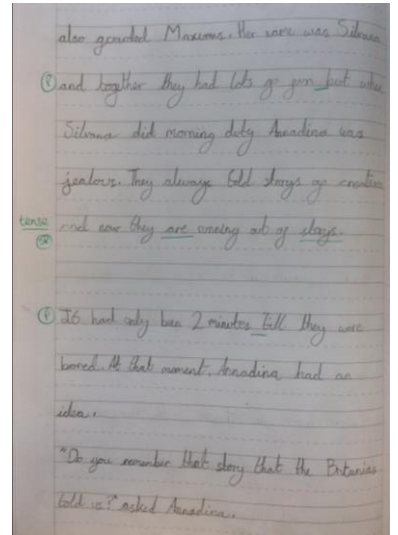 also guarded Maximus. Her name was Silvana
(P) and together they had lots go gun but when
Silvana did morning duty Annadina was
jealous. They always told storys of creation
tense
and now they are running out of storys.
(P) It had only been 2 minutes till they were
bored. At that moment, Annadina had an
idea.
"Do you remember that story that the Britanias
told is?" asked Annadina.